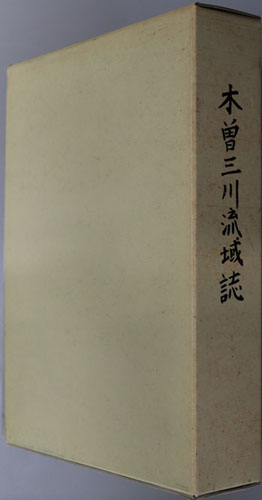 木曽三川流域誌